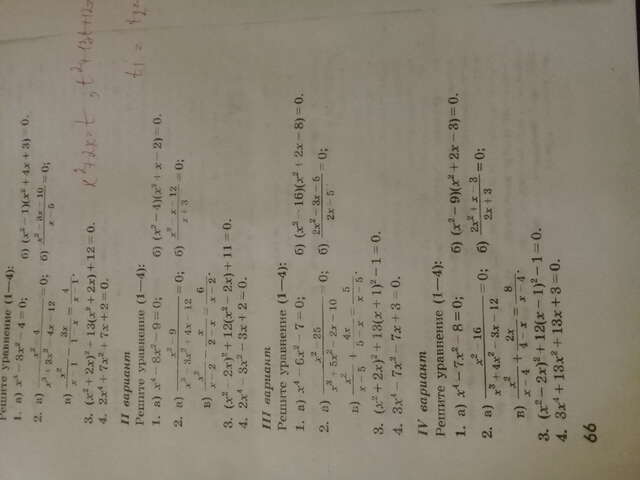 Решите уравнение (1—4):
1. а) x⁴ − 3x² − 4 = 0; б) (x² − 1)(x² + 4x + 3) = 0.
2. а) x² 4 / x³ + 3x² 4x 12 = 0; б) x² − 3x − 10 / x − 5 = 0;
в) x² / x − 1 3x / 1 − x = 4 / x − 1.
3. (x² + 2x)² − 13(x² + 2x) + 12 = 0.
4. 2x⁴ + 7x³ + 7x + 2 = 0.
x² + 2x = t
II вариант
Решите уравнение (1—4):
1. а) x⁴ − 8x² − 9 = 0; б) (x² − 4)(x² + x − 2) = 0.
2. а) x² 9 / x³ 3x² + 4x − 12 = 0; б) x² x − 12 / x + 3 = 0;
в) x² / x − 2 x / 2 − x = 6 / x − 2.
3. (x² 2x)² + 12(x² − 2x) + 11 = 0.
4. 2x⁴ 3x³ − 3x + 2 = 0.
III вариант
Решите уравнение (1—4):
1. а) x⁴ 6x² 7 = 0; б) (x² − 16)(x² + 2x − 8) = 0.
2. а) x² − 25 / x³ + 5x² − 2x − 10 = 0; б) 2x² − 3x − 5 / 2x − 5 = 0;
в) x² / x − 5 + 4x / 5 − x = 5 / x − 5.
3. (x² + 2x)² + 13(x + 1)² − 1 = 0.
4. 3x⁴ 7x³ 7x + 3 = 0.
IV вариант
Решите уравнение (1—4):
1. а) x⁴ − 7x² 8 = 0; б) (x² − 9)(x² + 2x − 3) = 0.
2. а) x² − 16 / x³ + 4x² − 3x − 12 = 0; б) 2x² + x − 3 / 2x + 3 = 0;
в) x² / x − 4 + 2x / 4 − x = 8 / x − 4.
3. (x² − 2x)² + 12(x − 1)² − 1 = 0.
4. 3x⁴ + 13x³ + 13x + 3 = 0.
66